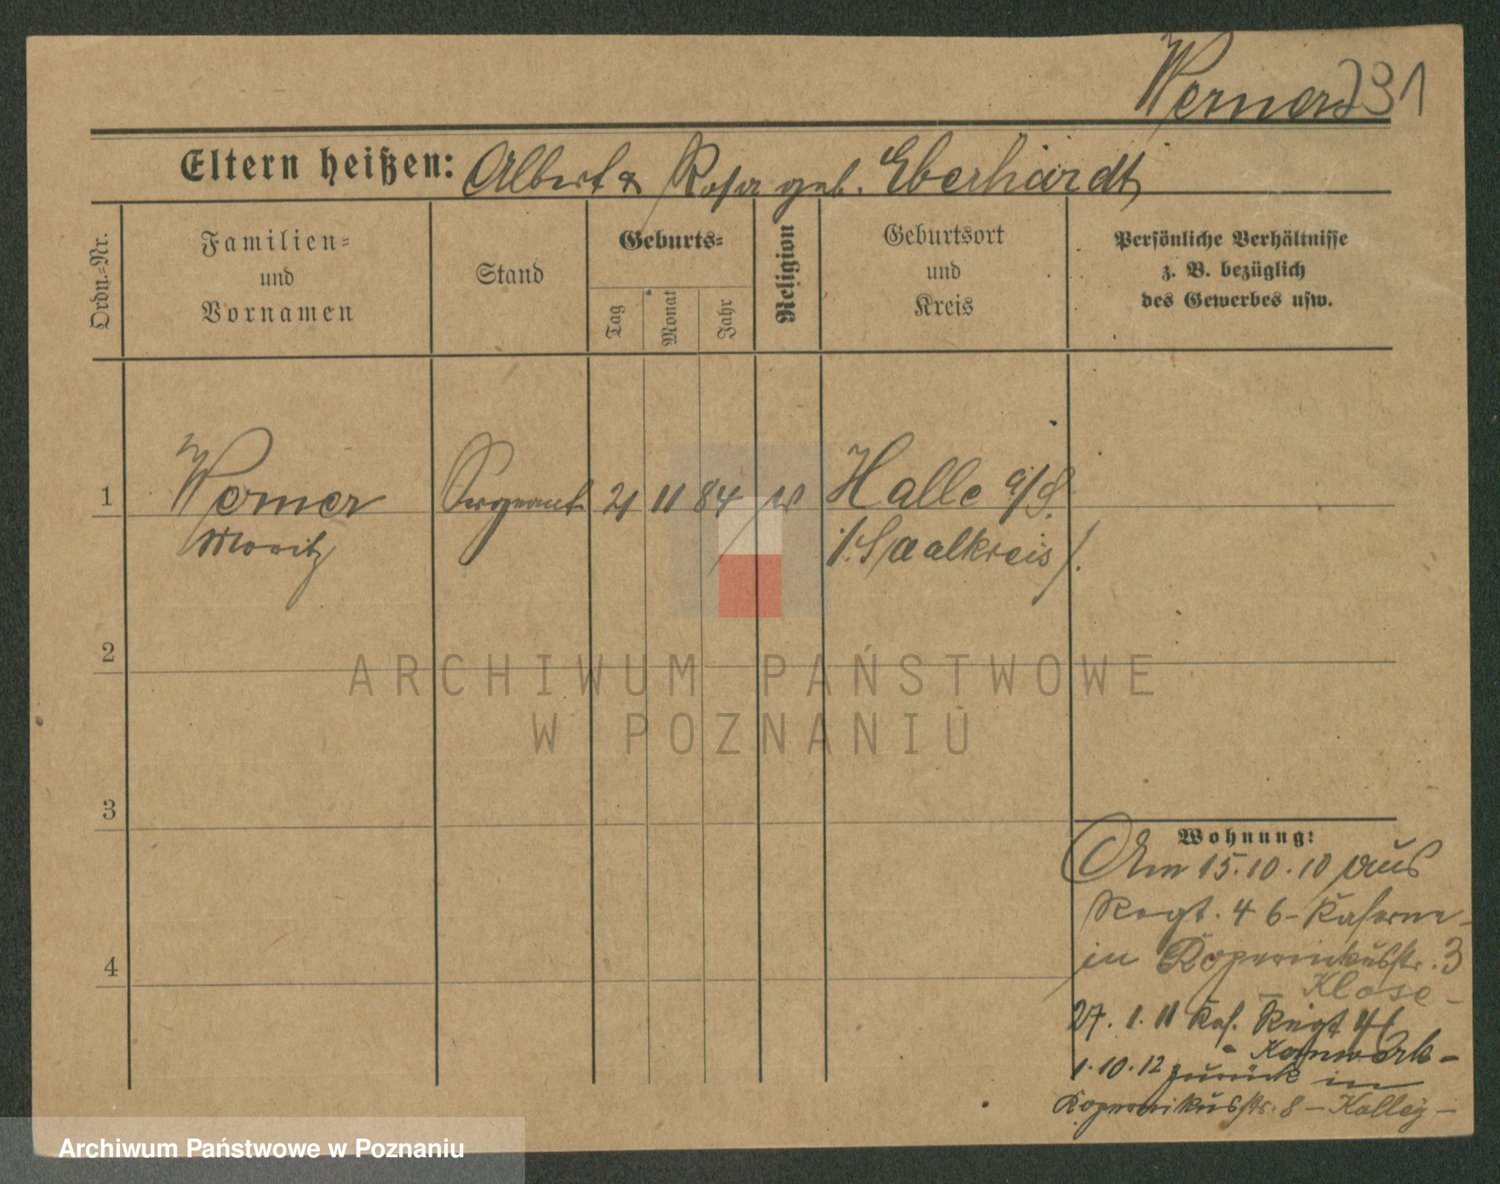 Werner 731
Eltern heißen: Albert & Rosa geb. Eberhardt
Ordn.-Nr.
Familien-
und
Vornamen
Stand
Geburts-
Tag
Monat
Jahr
Religion
Geburtsort
und
Kreis
Persönliche Verhältnisse
z. B. bezüglich
des Gewerbes usw.
1 Werner Sergeant 21 11 84 Halle a/S.
Moritz /:Saalkreis/.
2
3
4
Wohnung:
Am 15.10.10 aus
Regt. 46 - Kaserne -
in Kopernikusstr. 3
- Klose -
27.1.11 Kas. Regt 46
- Kornwerk -
1.10.12 zurück in
Kopernikusstr. 8 - Kalley -
ARCHIWUM PAŃSTWOWE
W POZNANIU
Archiwum Państwowe w Poznaniu